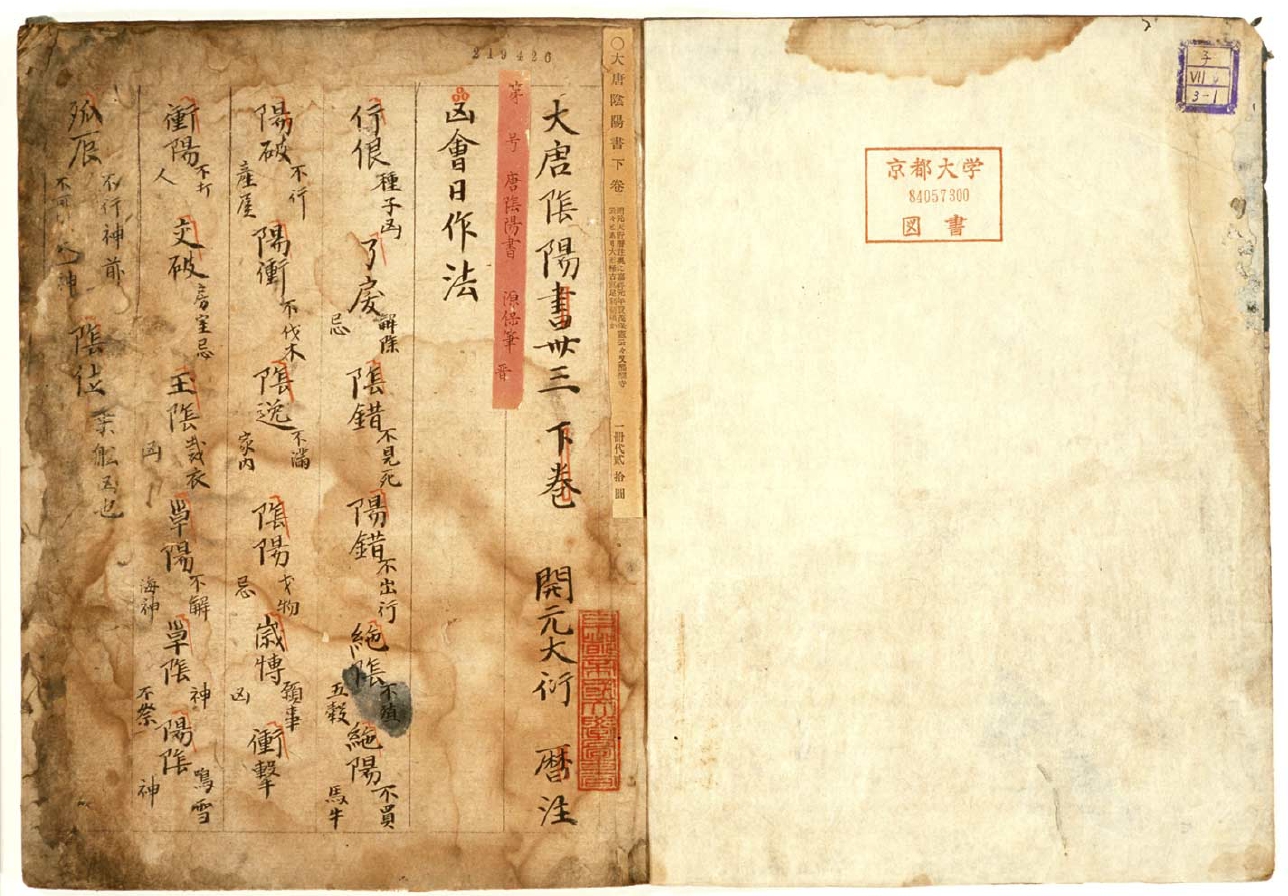 子
VII
3-1
京都大学
84057300
図書
219426
○大唐陰陽書下卷
一冊代貳拾圓
大唐陰陽書卅三下卷 開元大衍暦注
京都帝國大學圖書
第 号 唐陰陽書 源保筆
凶會日作法
行佷 種子凶 了戾 解除忌 陰錯 不見死 陽錯 不出行 絶陰 不殖五穀 絶陽 不買馬牛
陽破 不行產 陽衝 不伐木 陰 不満家内 陰陽 忌 歳博 領事凶 衝擊
衝陽 不打人 交破 房室忌 王陰 裁衣凶 単陽 不解海神 単陰 神不祭 陽陰 神
孤辰 不行神前 陰位 乗船凶也